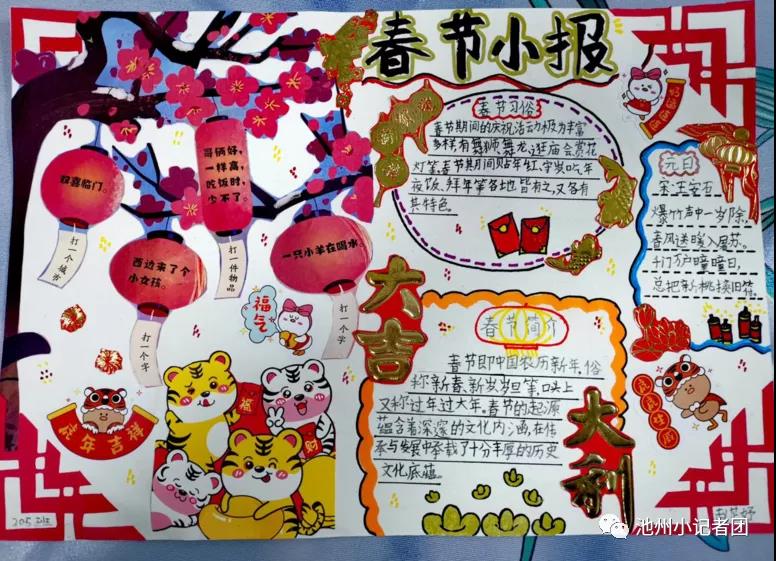 春节小报
春节习俗
春节期间的庆祝活动极为丰富
多样,有舞狮、舞龙、逛庙会、赏花
灯笼,春节期间贴年红、守岁、吃年
夜饭、拜年等各地皆有之,又各有
其特色。
元日
宋·王安石
爆竹声中一岁除,
春风送暖入屠苏。
千门万户曈曈日,
总把新桃换旧符。
双喜临门。
打一个城市
哥俩好,
一样高,
吃饭时,
少不了。
打一件物品
西边来了个
小女孩。
打一个字
一只小羊在喝水。
打一个字
福气
大吉
春节简介
春节即中国农历新年,俗
称新春、新岁、岁旦等,口头上
又称过年、过大年。春节的起源
蕴含着深邃的文化内涵,在传
承与发展中承载了十分丰厚的历史
文化底蕴。
大利
福
财
虎年吉祥
虎虎生威
205班
池州小记者团